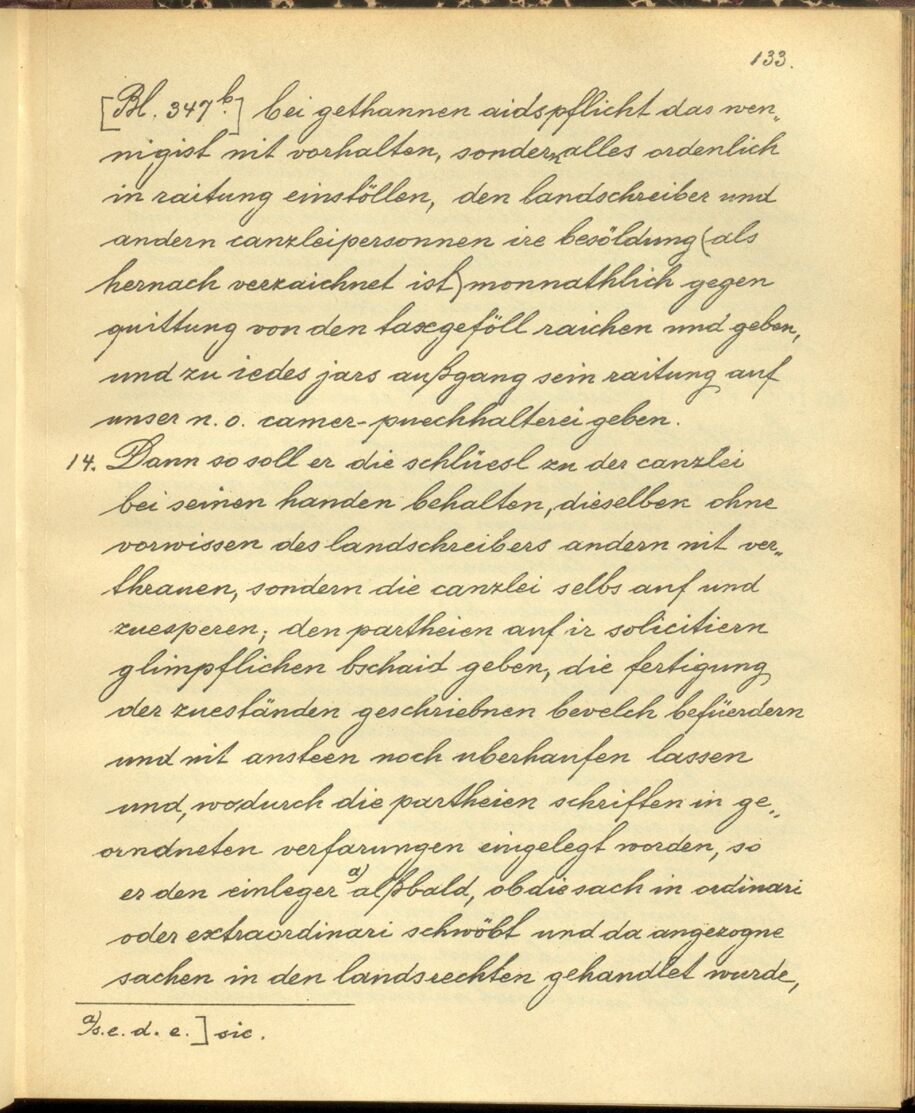 133.
[Bl. 347 b.] bei gethannen aidspflicht das wen„
nigist nit vorhalten, sondern alles ordenlich
in raitung einstöllen, den landschreiber und
andern canzleipersonnen ire besöldung (als
hernach verzaichnet ist) monnathlich gegen
quittung von den taxgeföll raichen und geben,
und zu iedes jars außgang sein raitung auf
unser n. o. camer-puechhalterei geben.
14. Dann so soll er die schlüesl zu der canzlei
bei seinen handen behalten, dieselben ohne
vorwissen des landschreibers andern nit ver„
thrauen, sondern die canzlei selbs auf und
zuesperen; den partheien auf ir solicitiern
glimpflichen bschaid geben, die fertigung
der zueständen geschriebnen bevelch befüerdern
und nit ansteen noch uberhaufen lassen
und, wodurch die partheien schriften in ge„
orndneten verfarungen eingelegt worden, so
er den einleger a) alßbald, ob die sach in ordinari
oder extraordinari schwöbt und da angezogne
sachen in den landsrechten gehandlet wurde,
a) s. e. d. e.] sic.